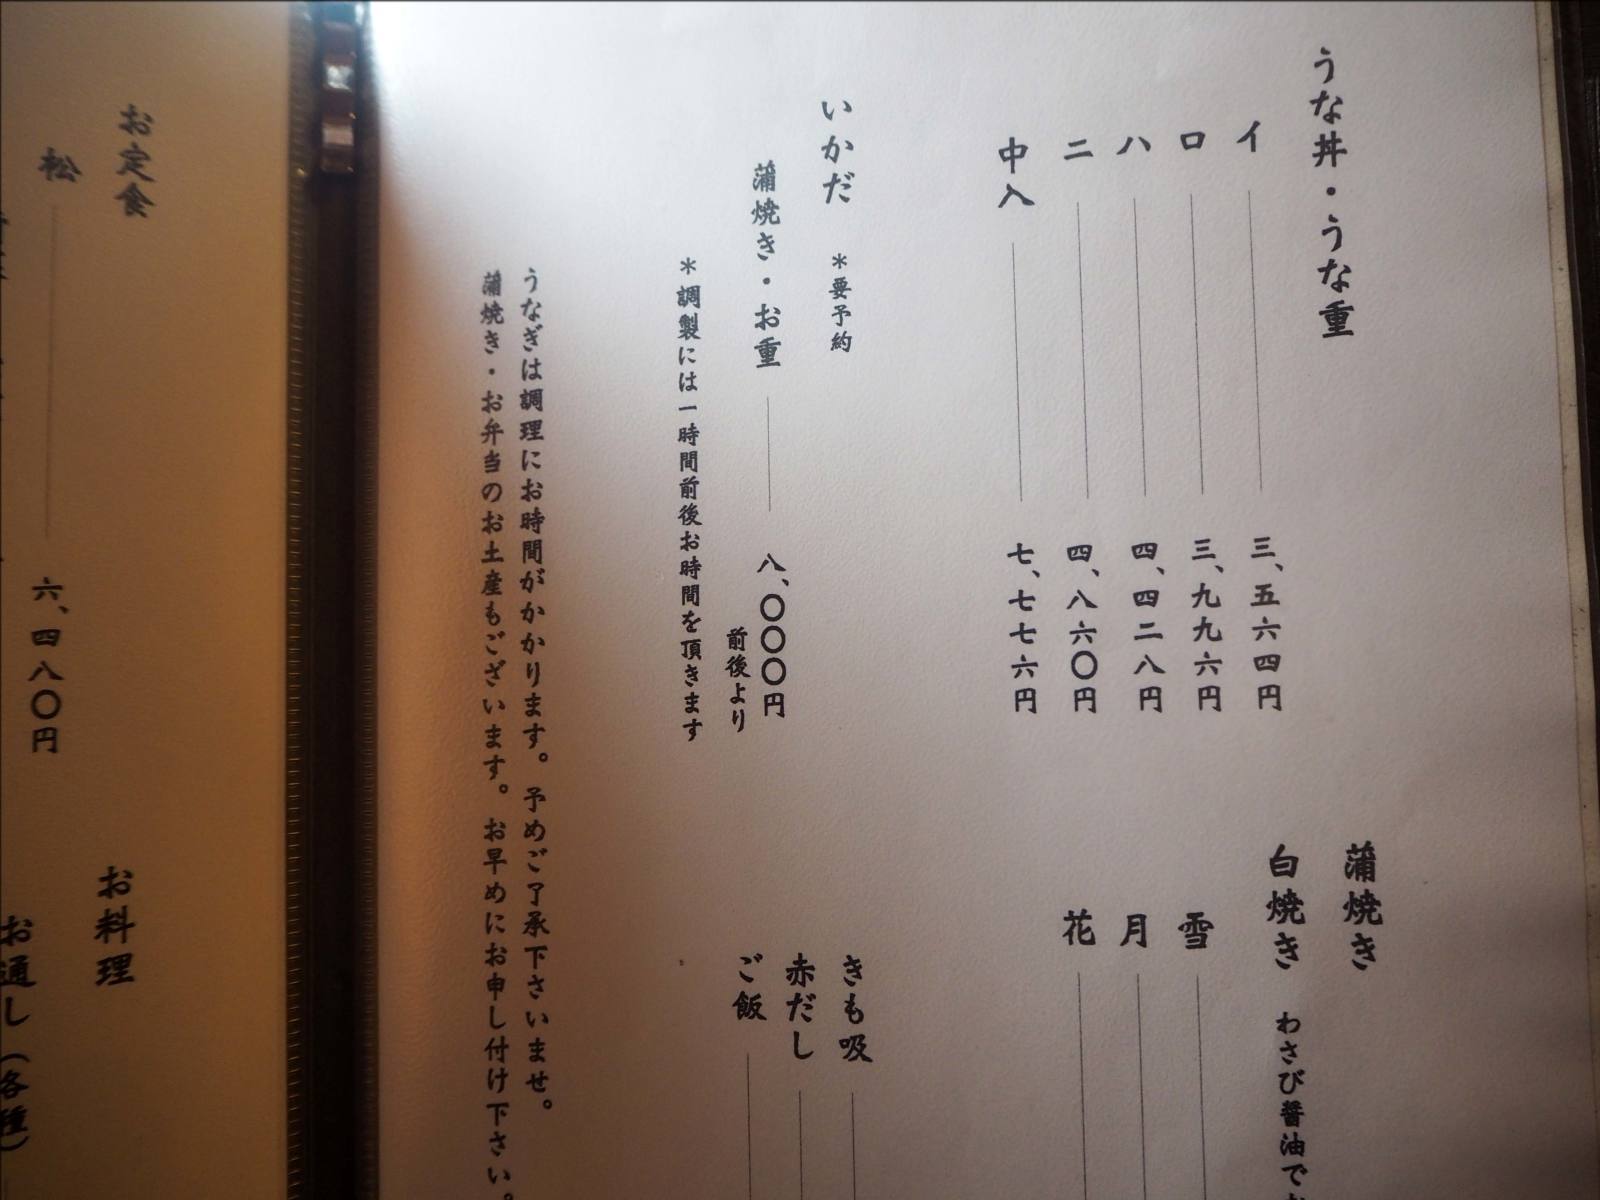 うな丼・うな重
イ 三、五六四円
ロ 三、九九六円
ハ 四、四二八円
ニ 四、八六〇円
中入 七、七七六円
いかだ ＊要予約
蒲焼き・お重 八、〇〇〇円
前後より
＊調製には一時間前後お時間を頂きます
うなぎは調理にお時間がかかります。予めご了承下さいませ。
蒲焼き・お弁当のお土産もございます。お早めにお申し付け下さい。
蒲焼き
白焼き わさび醤油で
雪
月
花
きも吸
赤だし
ご飯
お定食
松 六、四八〇円
お料理
お通し（各種）